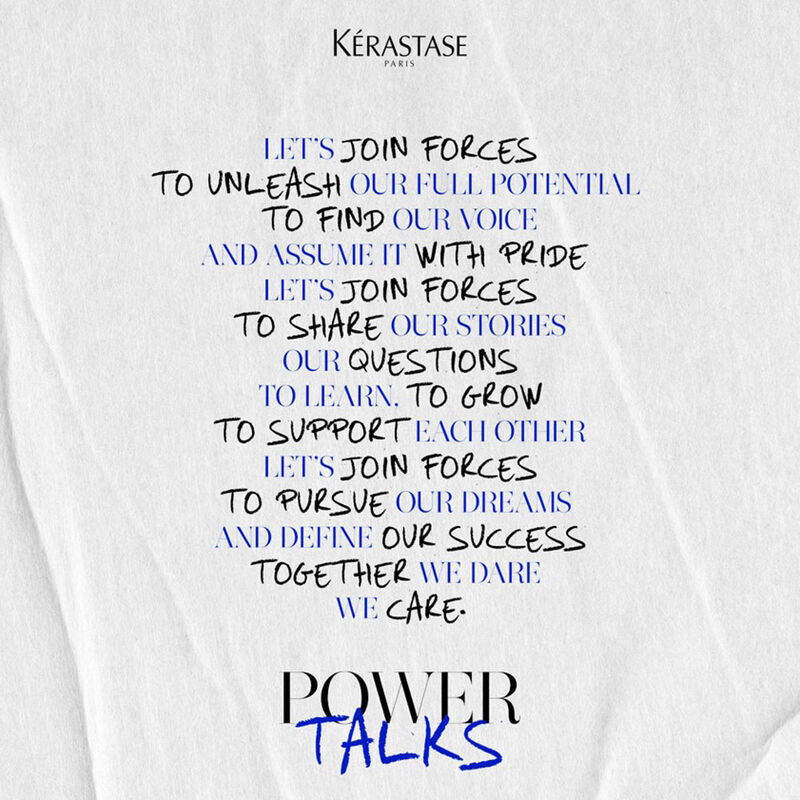 KÉRASTASE
PARIS
LET'S JOIN FORCES
TO UNLEASH OUR FULL POTENTIAL
TO FIND OUR VOICE
AND ASSUME IT WITH PRIDE
LET'S JOIN FORCES
TO SHARE OUR STORIES
OUR QUESTIONS
TO LEARN, TO GROW
TO SUPPORT EACH OTHER
LET'S JOIN FORCES
TO PURSUE OUR DREAMS
AND DEFINE OUR SUCCESS
TOGETHER WE DARE
WE CARE.
POWER
TALKS